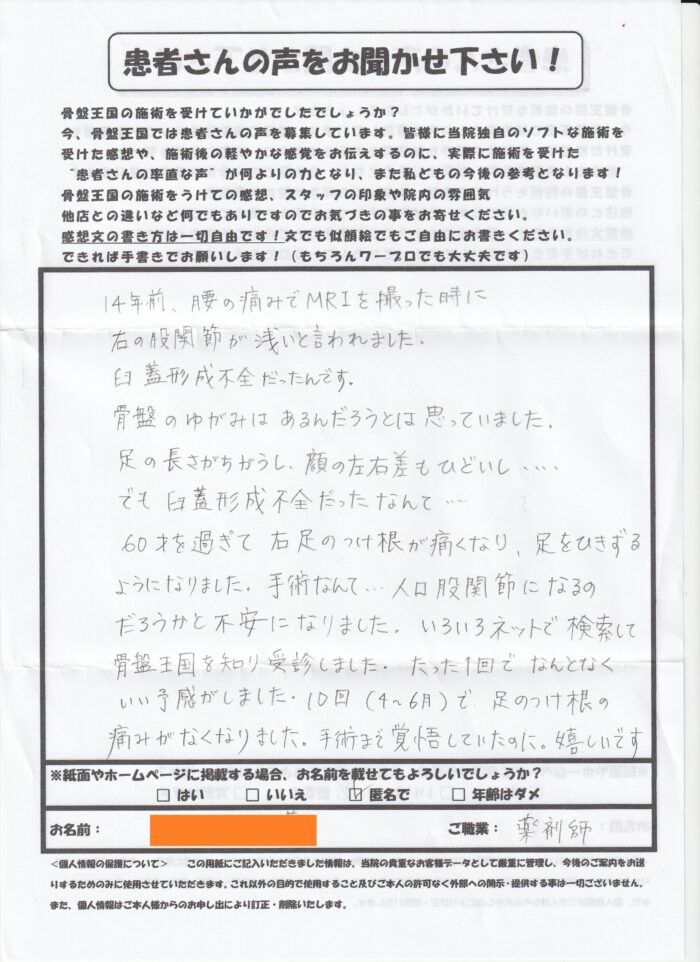 患者さんの声をお聞かせ下さい！
骨盤王国の施術を受けていかがでしたでしょうか？
今、骨盤王国では患者さんの声を募集しています。皆様に当院独自のソフトな施術を
受けた感想や、施術後の軽やかな感覚をお伝えするのに、実際に施術を受けた
“患者さんの率直な声”が何よりの力となり、また私どもの今後の参考となります！
骨盤王国の施術をうけての感想、スタッフの印象や院内の雰囲気
他店との違いなど何でもありですのでお気づきの事をお寄せください。
感想文の書き方は一切自由です！文でも似顔絵でもご自由にお書きください。
できれば手書きでお願いします！（もちろんワープロでも大丈夫です）
14年前、腰の痛みでMRIを撮った時に
右の股関節が浅いと言われました。
臼蓋形成不全だったんです。
骨盤のゆがみはあるんだろうとは思っていました。
足の長さがちがうし、顔の左右差もひどいし‥‥
でも臼蓋形成不全だったなんて…
60才を過ぎて右足のつけ根が痛くなり、足をひきずる
ようになりました。手術なんて…人口股関節になるの
だろうかと不安になりました。いろいろネットで検索して
骨盤王国を知り受診しました。たった1回でなんとなく
いい予感がしました。10回(4〜6月)で足のつけ根の
痛みがなくなりました。手術まで覚悟していたのに。嬉しいです
※紙面やホームページに掲載する場合、お名前を載せてもよろしいでしょうか？
□ はい □ いいえ ☑ 匿名で □ 年齢はダメ
お名前： ご職業： 薬剤師
<個人情報の保護について> この用紙にご記入いただきました情報は、当院の貴重なお客様データとして厳重に管理し、今後のご案内をお送
りするためのみに使用させていただきます。これ以外の目的で使用すること及びご本人の許可なく外部への開示・提供する事は一切ございません。
また、個人情報はご本人様からのお申し出により訂正・削除いたします。